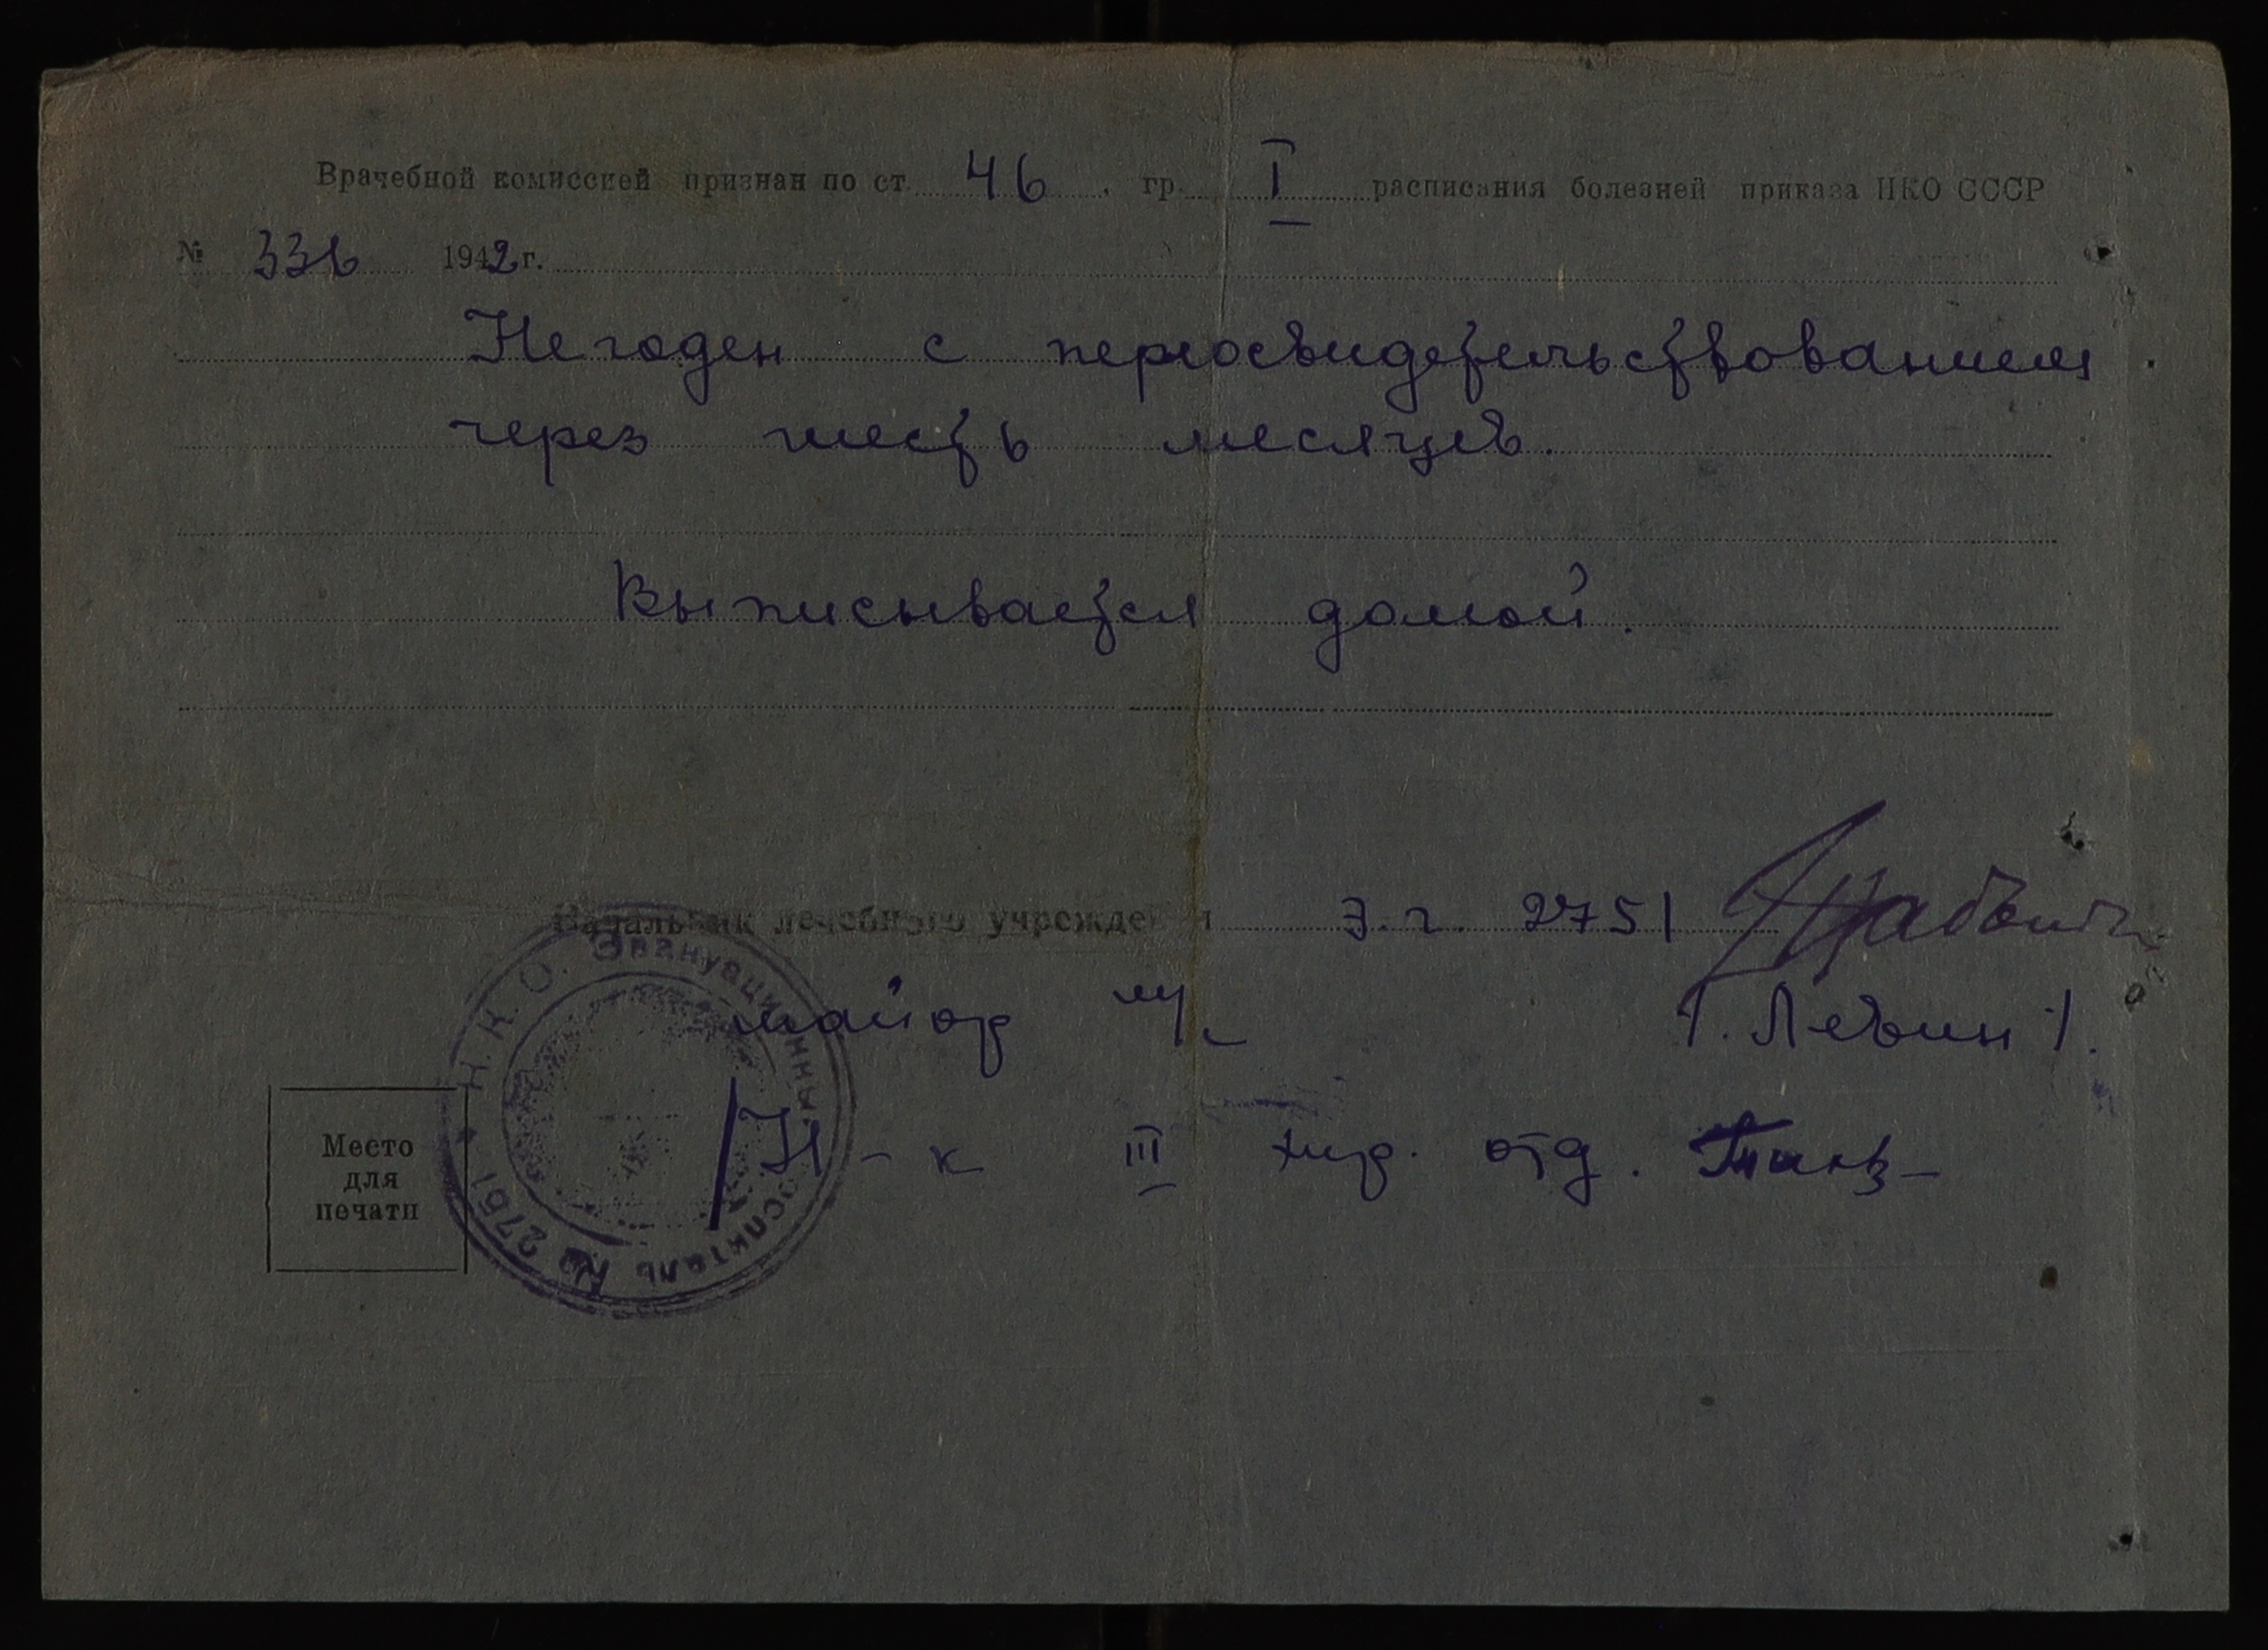 Врачебной комиссией признан по ст. 46, гр. I расписания болезней приказа НКО СССР
№ 336 1942 г.
Не годен с переосвидетельствованием
через шесть месяцев.
Выписывается домой.
Начальник лечебного учреждения Э.г. 2751
майор м/с /. Левин /.
Н-к III хир. отд.
Место
для
печати
Н.К.О. Эвакуационный госпиталь № 2751